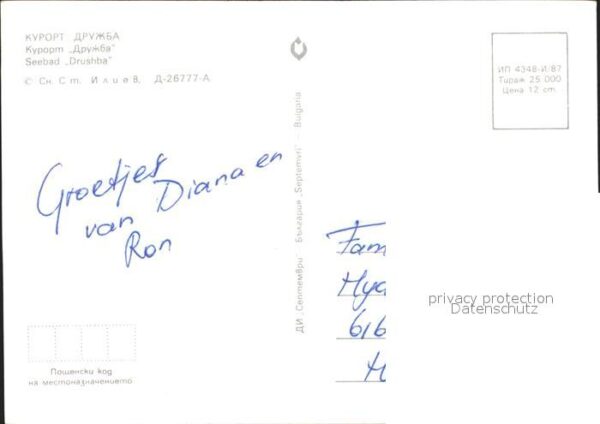 КУРОРТ ДРУЖБА
Курорт „Дружба"
Seebad „Drushba"
© Сн. Ст. Илиев, Д-26777-А
ИП 4348-И/87
Тираж 25 000
Цена 12 ст.
Groetjes
van Diana en
Ron
ДИ „Септември" - България „Septemvri" - Bulgaria
Fam
616
privacy protection
Datenschutz
Пощенски код
на местоназначението